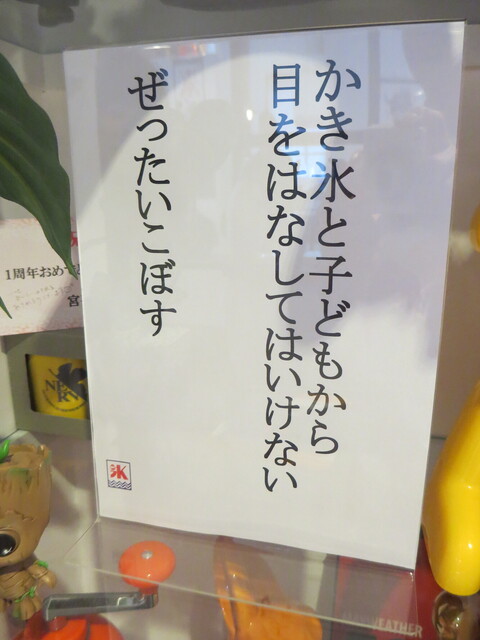 かき氷と子どもから
目をはなしてはいけない
ぜったいこぼす
氷
1周年おめで
宮
NE
RV
WEATHER